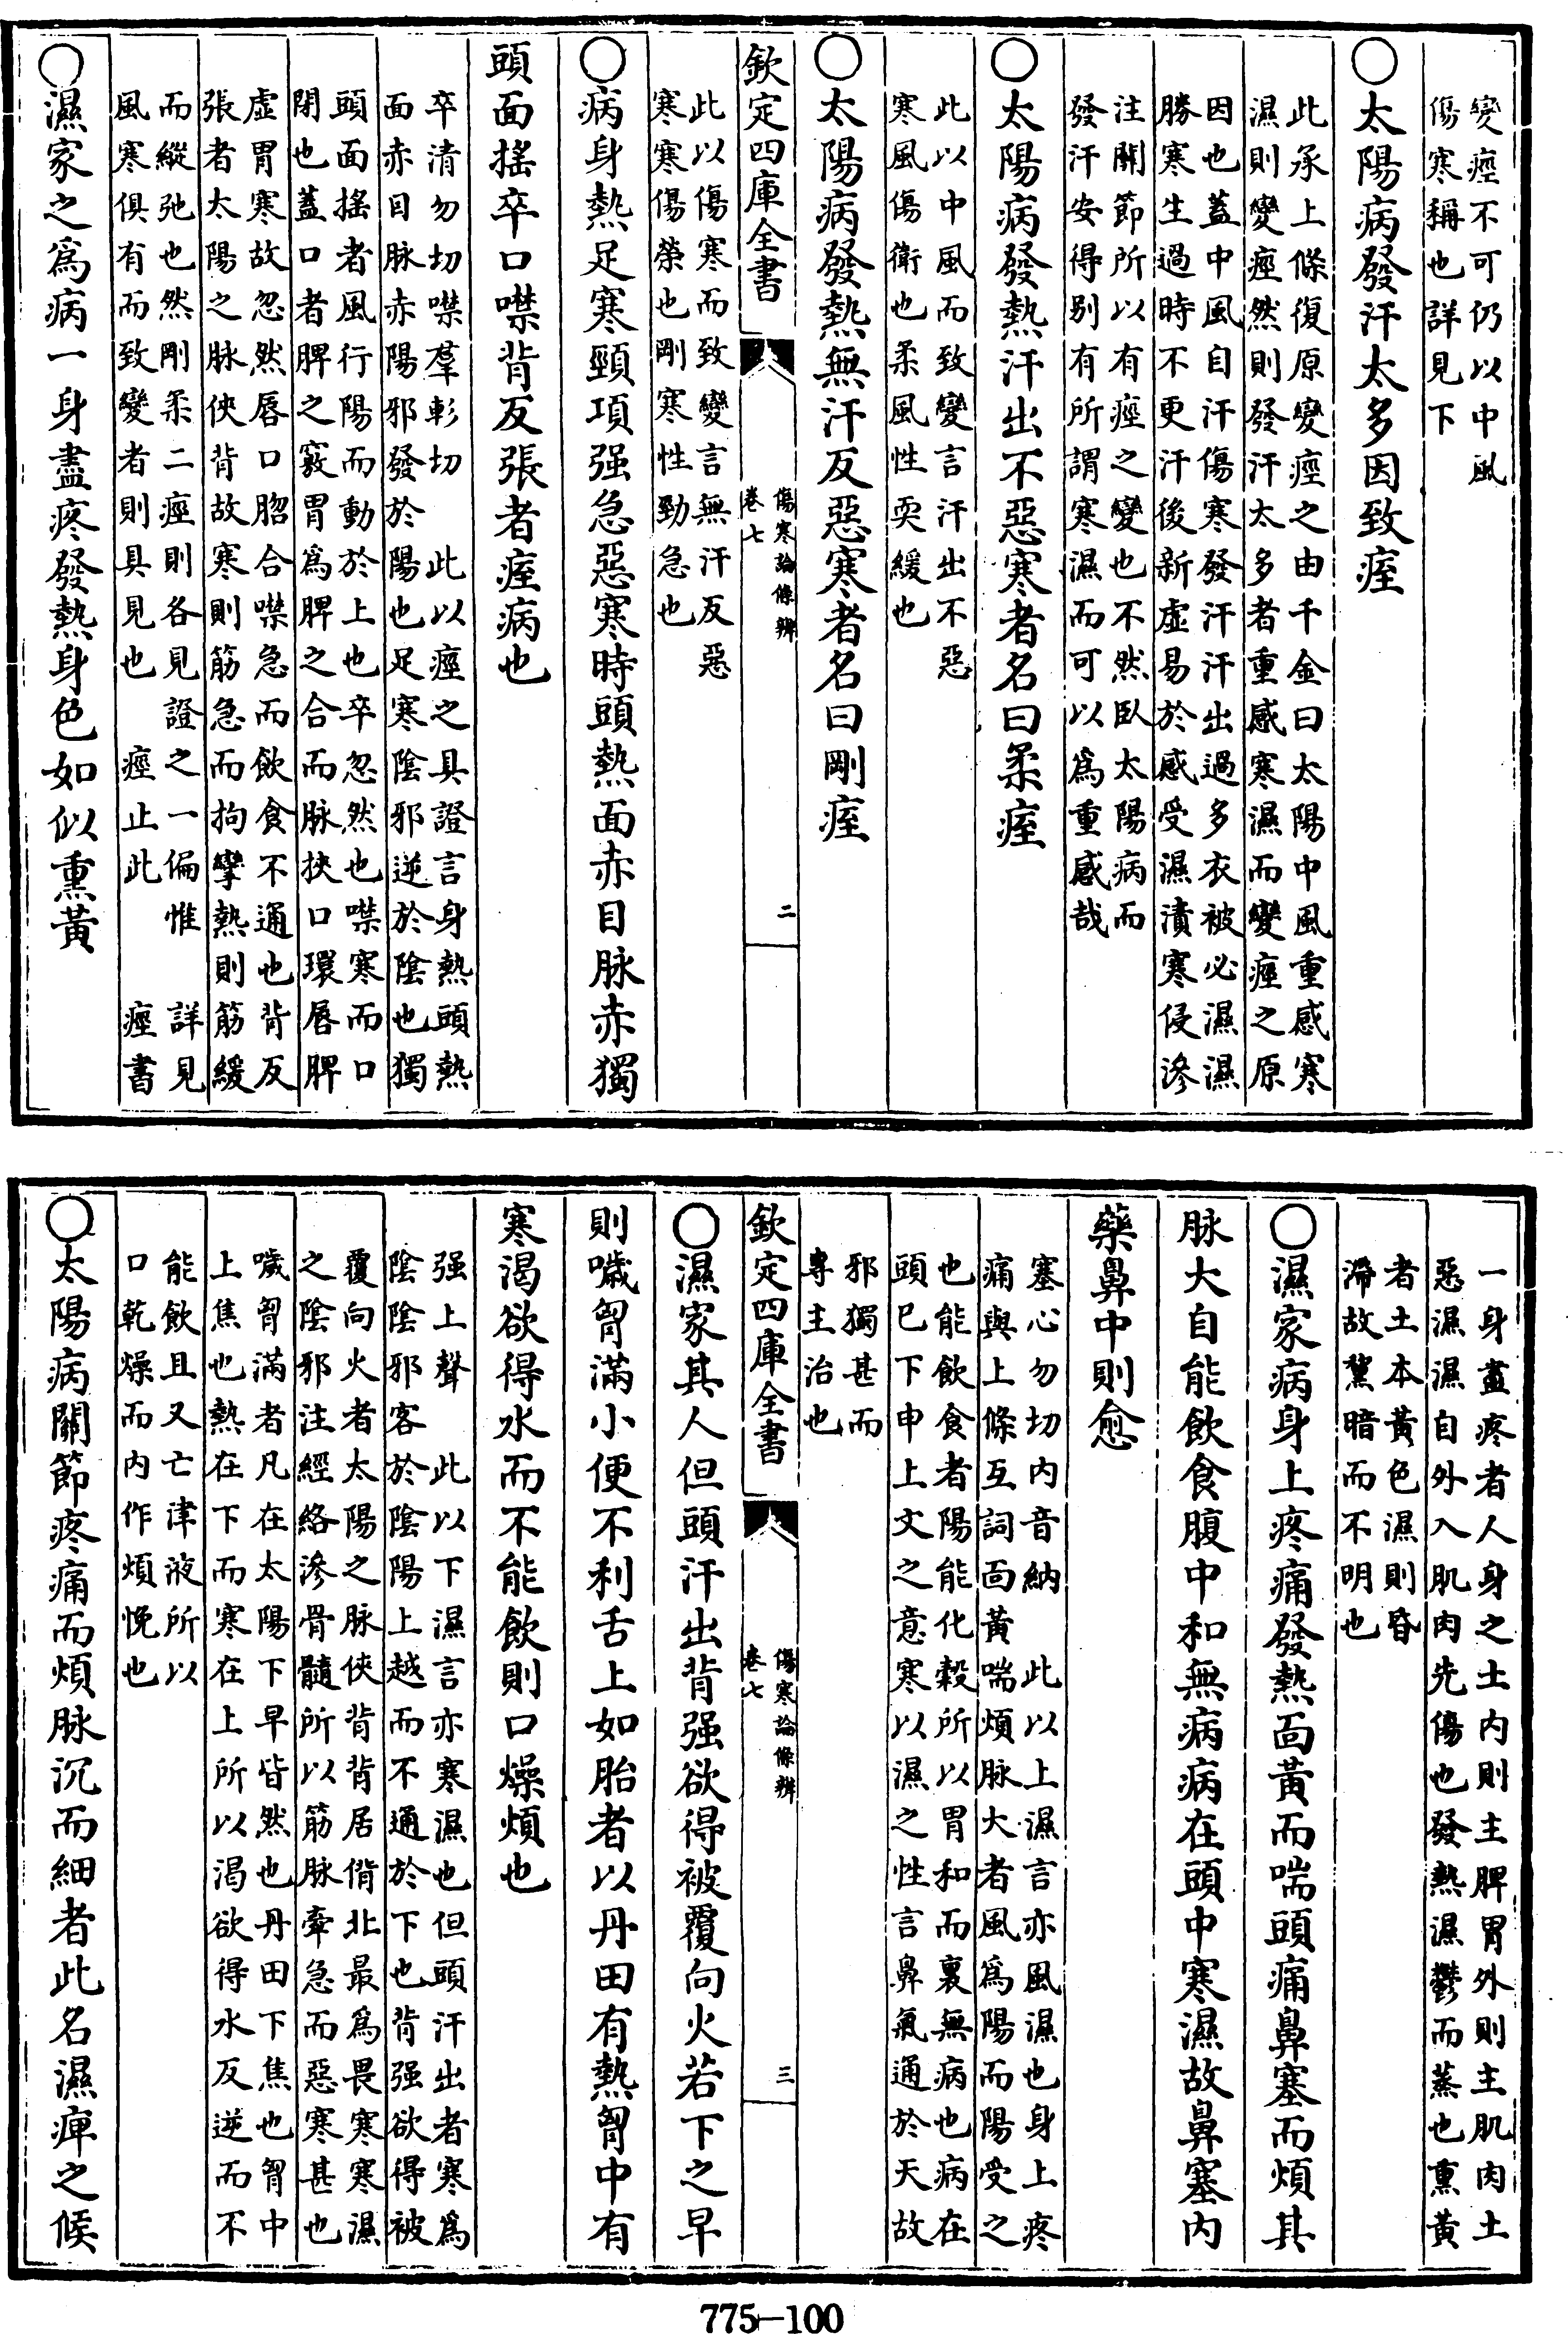 變痙不可仍以中風
傷寒稱也詳見下
○太陽病發汗太多因致痓
此承上條復原變痙之由千金曰太陽中風重感寒
濕則變痙然則發汗太多者重感寒濕而變痙之原
因也蓋中風自汗傷寒發汗汗出過多衣被必濕濕
勝寒生過時不更汗後新虛易於感受濕漬寒侵滲
注關節所以有痙之變也不然臥太陽病而
發汗安得别有所謂寒濕而可以爲重感哉
○太陽病發熱汗出不惡寒者名曰柔痓
此以中風而致變言汗出不惡
寒風傷衛也柔風性耎緩也
○太陽病發熱無汗反惡寒者名曰剛痓
欽定四庫全書
傷寒論條辨
卷七
二
此以傷寒而致變言無汗反惡
寒寒傷榮也剛寒性勁急也
○病身熱足寒頸項强急惡寒時頭熱面赤目脉赤獨
頭面搖卒口噤背反張者痓病也
卒清勿切噤羣彰切 此以痙之具證言身熱頭熱
面赤目脉赤陽邪發於陽也足寒陰邪逆於陰也獨
頭面搖者風行陽而動於上也卒忽然也噤寒而口
閉也蓋口者脾之竅胃爲脾之合而脉挾口環唇脾
虛胃寒故忽然唇口䐇合噤急而飲食不通也背反
張者太陽之脉俠背故寒則筋急而拘攣熱則筋緩
而縱弛也然剛柔二痙則各見證之一偏惟 詳見
風寒俱有而致變者則具見也 痙止此 痙書
○濕家之爲病一身盡疼發熱身色如似熏黃
一身盡疼者人身之土内則主脾胃外則主肌肉土
惡濕濕自外入肌肉先傷也發熱濕鬱而蒸也熏黃
者土本黃色濕則昏
滯故黧暗而不明也
○濕家病身上疼痛發熱面黃而喘頭痛鼻塞而煩其
脉大自能飲食腹中和無病病在頭中寒濕故鼻塞内
藥鼻中則愈
塞心勿切内音納 此以上濕言亦風濕也身上疼
痛與上條互詞面黃喘煩脉大者風爲陽而陽受之
也能飲食者陽能化穀所以胃和而裏無病也病在
頭巳下申上文之意寒以濕之性言鼻氣通於天故
邪獨甚而
專主治也
欽定四庫全書
傷寒論條辨
卷七
三
○濕家其人但頭汗出背强欲得被覆向火若下之早
則噦胷滿小便不利舌上如胎者以丹田有熱胷中有
寒渴欲得水而不能飲則口燥煩也
强上聲 此以下濕言亦寒濕也但頭汗出者寒爲
陰陰邪客於陰陽上越而不通於下也背强欲得被
覆向火者太陽之脉俠背背居偝北最爲畏寒寒濕
之陰邪注經絡滲骨髓所以筋脉牽急而惡寒甚也
噦胷滿者凡在太陽下早皆然也丹田下焦也胷中
上焦也熱在下而寒在上所以渴欲得水反逆而不
能飲且又亡津液所以
口乾燥而内作煩悗也
○太陽病關節疼痛而煩脉沉而細者此名濕痺之候
775-100